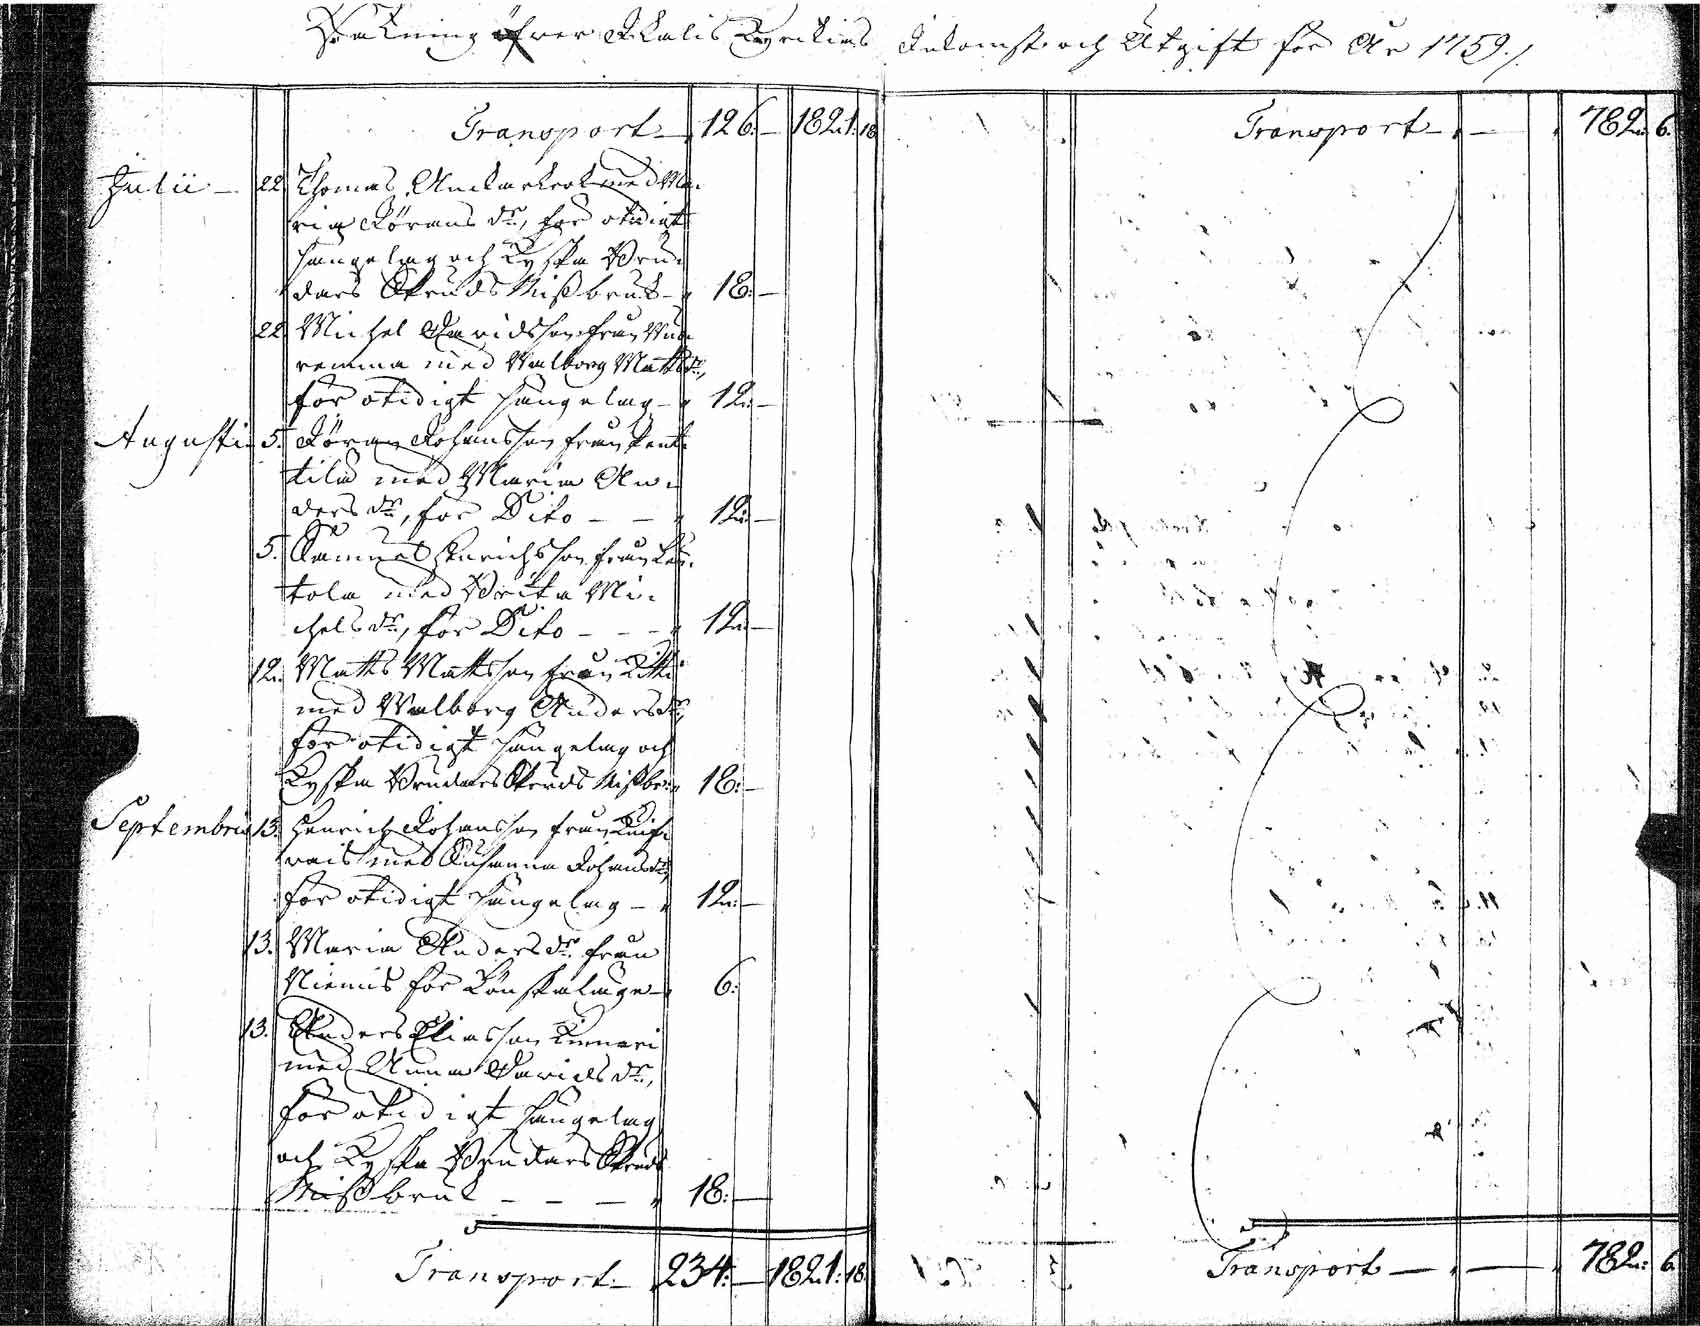 Räkning öfver Kalis Kyrckias Inkomst och Utgift för År 1759./.
Transport — 126: — 1821: 18
Julii — 22. Thomas med Ma-
ria Görans dr, för otidigt
sängelag och Kyska Bru-
dars Skruds Mißbruk — 18: —
22. Michel Davidsson från
remma med Walborg Matts dr,
för otidigt sängelag — 12: —
Augusti 5. Göran Johansson från Pent-
tilä med Maria An-
ders dr, för Dito — — 12: —
5. Samuel Henrichsson från
tola med Brita Mi-
chels dr, för Dito — — — 12: —
12. Matts Mattsson från
med Walborg Anders dr,
för otidigt sängelag och
Kyska Brudars Skruds Mißbr. 18: —
Septembris 13. Henrich Johansson från
med Susanna Johans dr,
för otidigt sängelag — 12: —
13. Maria Anders dr från
Niemis för Lönskaläge — 6:
13. Anders Eliasson
med Anna Davids dr,
för otidigt sängelag
och Kyska Brudars Skruds
Mißbruk — — — 18: —
Transport — 234: — 1821: 18.
Transport — — 782: 6.
Transport — — 782: 6.